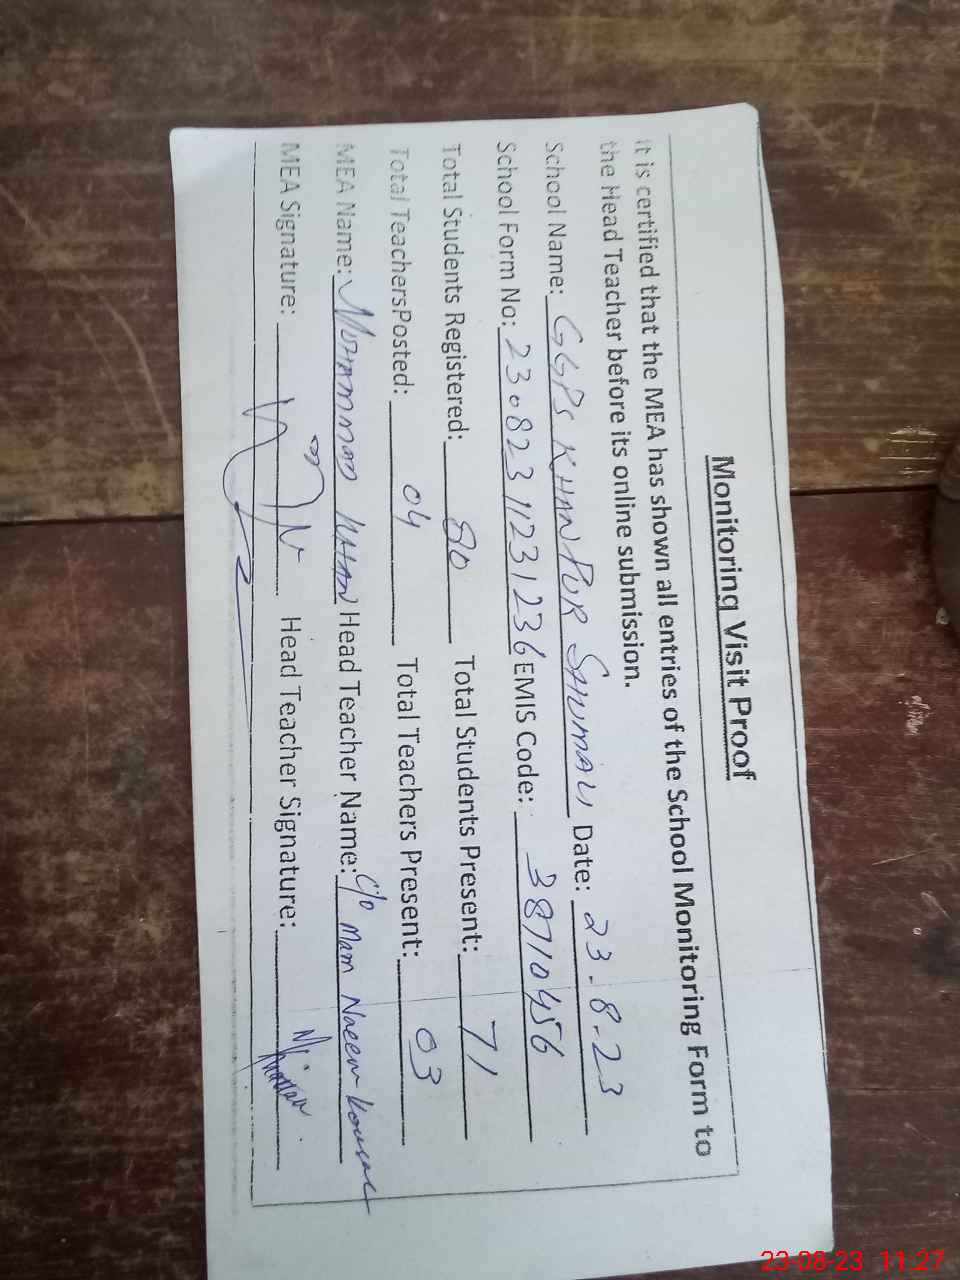 Monitoring Visit Proof
It is certified that the MEA has shown all entries of the School Monitoring Form to
the Head Teacher before its online submission.
School Name: GGPS KHANPUR SHUMALI Date: 23-8-23
School Form No: 230823 1123 1236 EMIS Code: 38710456
Total Students Registered: 80 Total Students Present: 71
Total TeachersPosted: 04 Total Teachers Present: 03
MEA Name: MOHAMMAD KHAN Head Teacher Name: C/o Mam Naeem Kousar
MEA Signature: Head Teacher Signature:
23-08-23 11:27